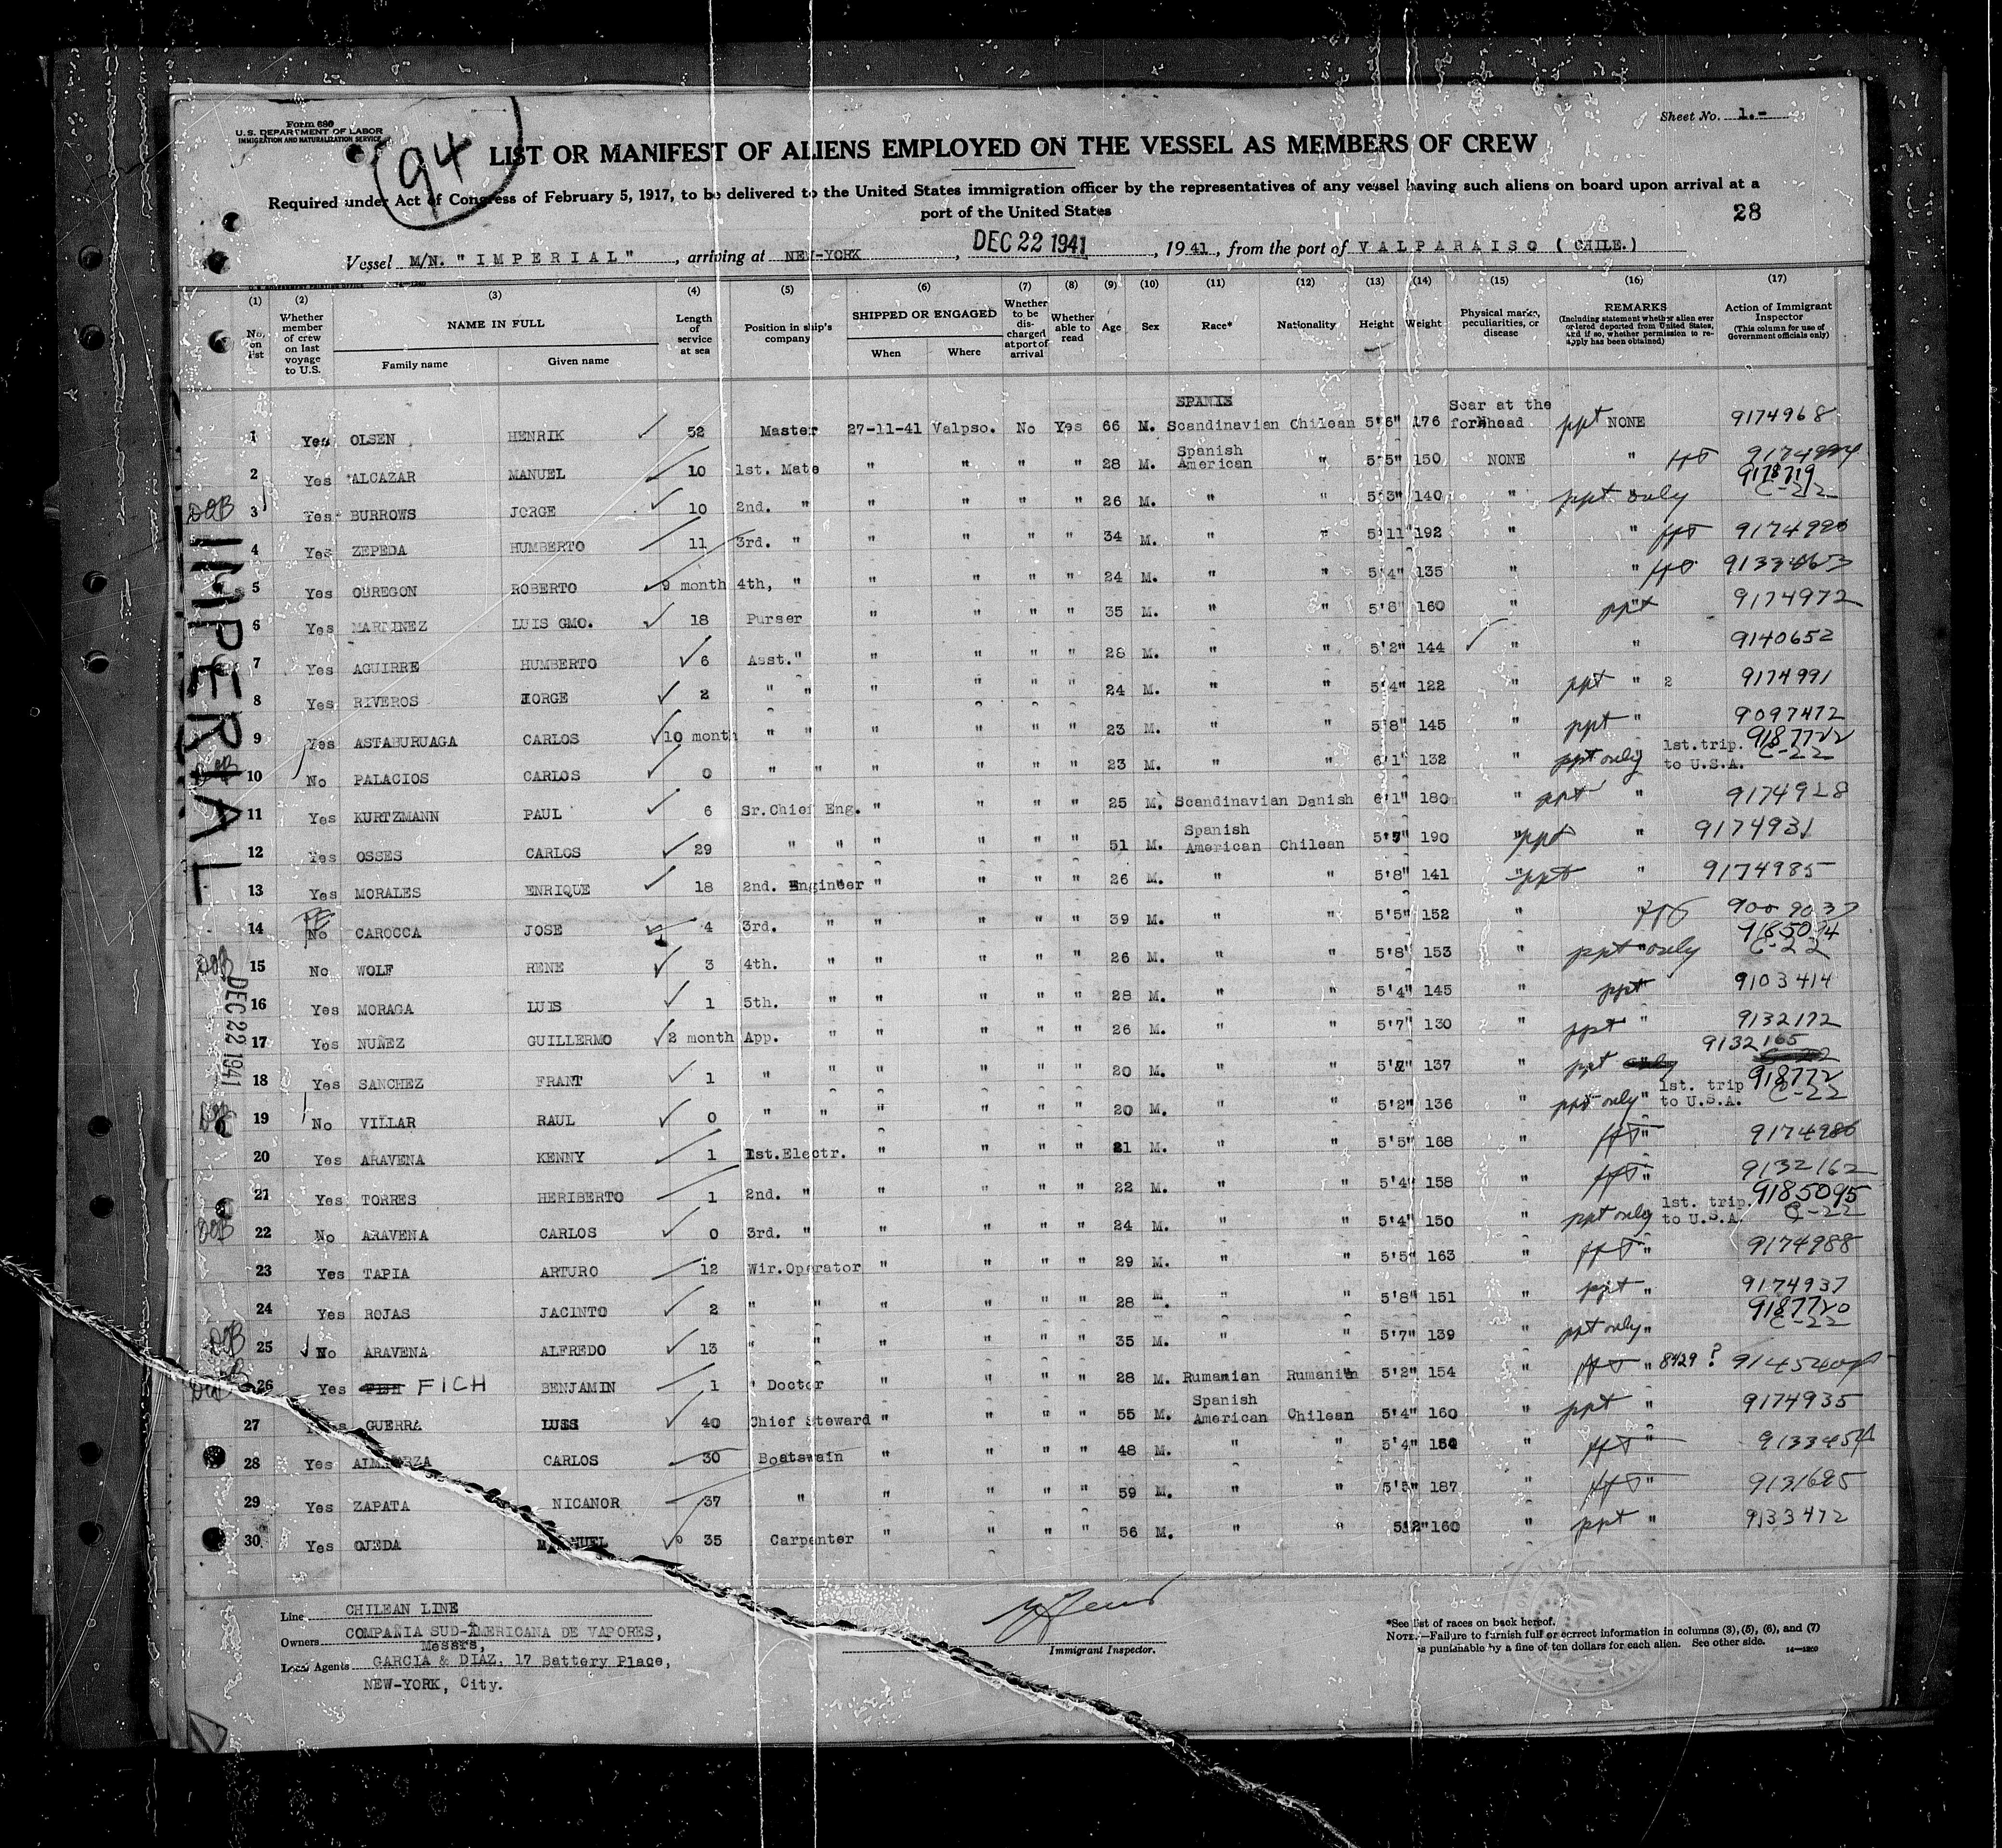 Form 680
U.S. DEPARTMENT OF LABOR
IMMIGRATION AND NATURALIZATION SERVICE
94
Sheet No. 1.-
LIST OR MANIFEST OF ALIENS EMPLOYED ON THE VESSEL AS MEMBERS OF CREW
Required under Act of Congress of February 5, 1917, to be delivered to the United States immigration officer by the representatives of any vessel having such aliens on board upon arrival at a
port of the United States
28
Vessel M/N. "IMPERIAL", arriving at NEW-YORK, DEC 22 1941, 1941, from the port of VALPARAISO (CHILE.)
(1) (2) (3) (4) (5) (6) (7) (8) (9) (10) (11) (12) (13) (14) (15) (16) (17)
No. on list
Whether member of crew on last voyage to U.S.
NAME IN FULL
Family name Given name
Length of service at sea
Position in ship's company
SHIPPED OR ENGAGED
When Where
Whether to be discharged at port of arrival
Whether able to read
Age Sex Race* Nationality Height Weight
Physical marks, peculiarities, or disease
REMARKS
(Including statement whether alien ever ordered deported from United States, and if so, whether permission to re-apply has been obtained)
Action of Immigrant Inspector
(This column for use of Government officials only)
IMPERIAL
DEC 22 1941
1 Yes OLSEN HENRIK 52 Master 27-11-41 Valpso. No Yes 66 M. Scandinavian Chilean 5'6" 176 Scar at the forhhead ppt NONE 9174968
2 Yes ALCAZAR MANUEL 10 1st. Mate " " " " 28 M. Spanish American " 5'5" 150 NONE "
3 Yes BURROWS JORGE 10 2nd. " " " " " 26 M. " " 5'3" 140 " ppt only 9178719 C-22
4 Yes ZEPEDA HUMBERTO 11 3rd. " " " " " 34 M. " " 5'11" 192 " " ppt 9174990
5 Yes OBREGON ROBERTO 9 month 4th, " " " " " 24 M. " " 5'4" 135 " "
6 Yes MARTINEZ LUIS GMO. 18 Purser " " " " 35 M. " " 5'8" 160 " ppt 9174972
7 Yes AGUIRRE HUMBERTO 6 Asst." " " " " 28 M. " " 5'2" 144 " " 9140652
8 Yes RIVEROS JORGE 2 " " " " " " 24 M. " " 5'4" 122 " ppt " 2 9174991
9 Yes ASTABURUAGA CARLOS 10 month " " " " " " 23 M. " " 5'8" 145 " ppt " 9097472
10 No PALACIOS CARLOS 0 " " " " " " 23 M. " " 6'1" 132 " ppt only" 1st.trip. to U.S.A. 9187722 C-22
11 Yes KURTZMANN PAUL 6 Sr.Chief Eng. " " " " 25 M. Scandinavian Danish 6'1" 180 " ppt " 9174928
12 Yes OSSES CARLOS 29 " " " " " " 51 M. Spanish American Chilean 5'7" 190 " ppt " 9174931
13 Yes MORALES ENRIQUE 18 2nd. Engineer " " " " 26 M. " " 5'8" 141 " ppt " 9174985
14 No CAROCCA JOSE 4 3rd. " " " " " 39 M. " " 5'5" 152 " ppt
15 No WOLF RENE 3 4th. " " " " " 26 M. " " 5'8" 153 " ppt "only 9185094 C-22
16 Yes MORAGA LUIS 1 5th. " " " " " 28 M. " " 5'4" 145 " ppt" 9103414
17 Yes NUÑEZ GUILLERMO 2 month App. " " " " " 26 M. " " 5'7" 130 " ppt " 9132172
18 Yes SANCHEZ FRANT 1 " " " " " " 20 M. " " 137 " ppt 9132165
19 No VILLAR RAUL 0 " " " " " " 20 M. " " 5'2" 136 " ppt only" 1st. trip to U.S.A. 918772 C-22
20 Yes ARAVENA KENNY 1 1st.Electr. " " " " 21 M. " " 5'5" 168 " ppt" 9174986
21 Yes TORRES HERIBERTO 1 2nd. " " " " " 22 M. " " 5'4" 158 " ppt" 9132162
22 No ARAVENA CARLOS 0 3rd. " " " " " 24 M. " " 5'4" 150 " ppt only 1st. trip. to U.S.A. 9185095 C-22
23 Yes TAPIA ARTURO 12 Wir.Operator " " " " 29 M. " " 5'5" 163 " ppt" 9174988
24 Yes ROJAS JACINTO 2 " " " " " " 28 M. " " 5'8" 151 " ppt " 9174937
25 No ARAVENA ALFREDO 13 " " " " " " 35 M. " " 5'7" 139 " ppt only" 9187720 C-22
26 Yes FICH BENJAMIN 1 " Doctor " " " " 28 M. Rumanian Rumanian 5'2" 154 " ppt " 8429 ?
27 Yes GUERRA LUIS 40 Chief Steward " " " " 55 M. Spanish American Chilean 5'4" 160 " ppt " 9174935
28 Yes CARLOS 30 Boatswain " " " " 48 M. " " 5'4" " ppt" 9133454
29 Yes ZAPATA NICANOR 37 " " " " " 59 M. " " 5'5" 187 " ppt" 9131685
30 Yes OJEDA MANUEL 35 Carpenter " " " " 56 M. " " 5'2" 160 " ppt " 9133472
Line CHILEAN LINE
Owners COMPAÑIA SUD-AMERICANA DE VAPORES,
Messrs,
Local Agents GARCIA & DIAZ, 17 Battery Place,
NEW-YORK, City.
Immigrant Inspector.
*See list of races on back hereof.
NOTE.—Failure to furnish full or correct information in columns (3), (5), (6), and (7)
is punishable by a fine of ten dollars for each alien. See other side.
14—1240